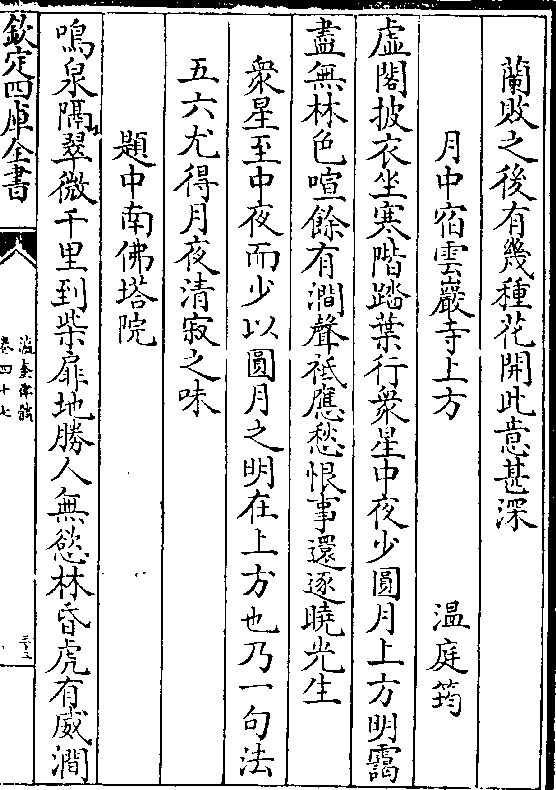 蘭敗之後有幾種花開此意甚深
月中宿雲巖寺上方 温庭筠
虚閣披衣坐寒階踏葉行衆星中夜少圓月上方明靄
盡無林色喧餘有澗聲祗應愁恨事還逐曉光生
衆星至中夜而少以圓月之明在上方也乃一句法
五六尤得月夜清寂之味
題中南佛塔院
鳴泉隔翠微千里到柴扉地勝人無慾林昏虎有威澗
欽定四庫全書
瀛奎律髓
卷四十七
三十三